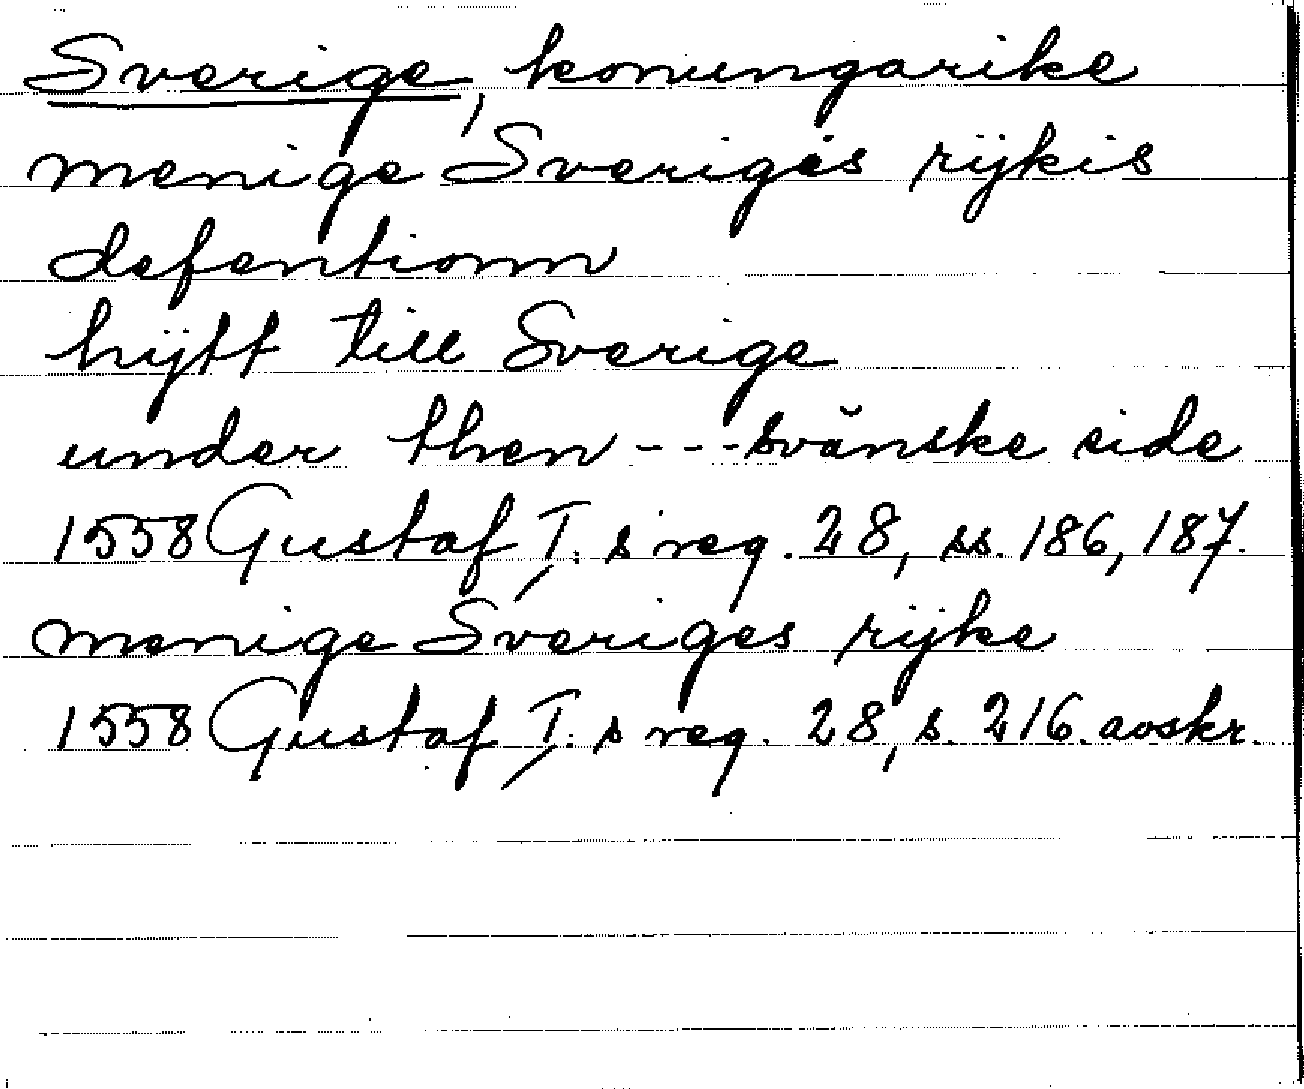 Sverige, konungarike
menige Sveriges rijkis
defentionn
hijtt till Sverige
under then --- svänske side
1558 Gustaf I:s reg. 28, ss. 186, 187.
menige Sveriges rijke
1558 Gustaf I:s reg. 28, s. 216. avskr.